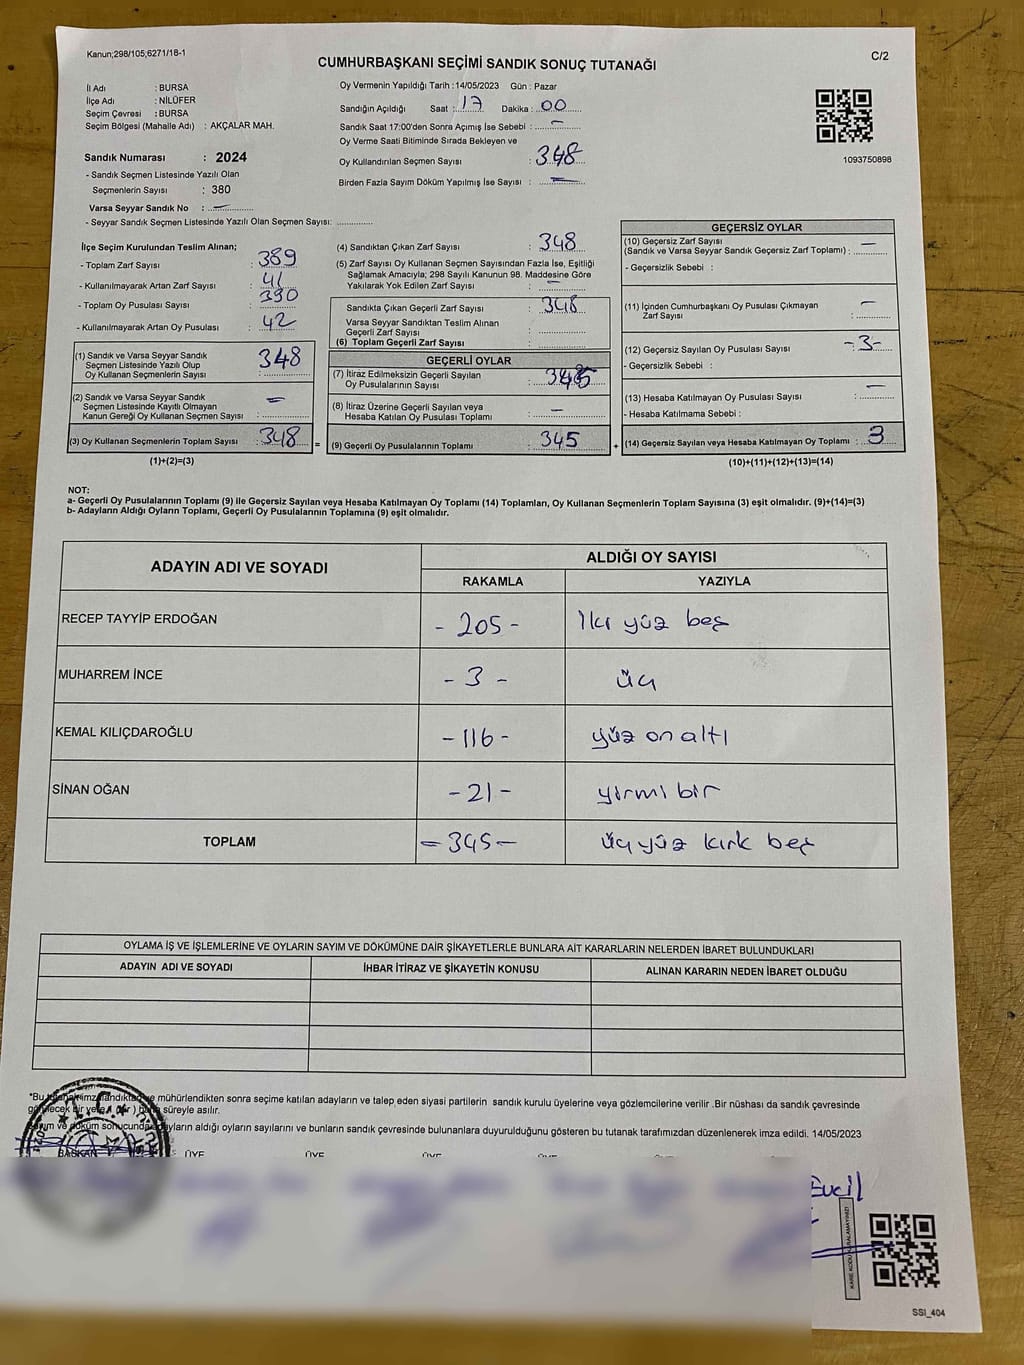 Kanun;298/105,6271/18-1
C/2
CUMHURBAŞKANI SEÇİMİ SANDIK SONUÇ TUTANAĞI
İl Adı : BURSA
İlçe Adı : NİLÜFER
Seçim Çevresi : BURSA
Seçim Bölgesi (Mahalle Adı) : AKÇALAR MAH.
Sandık Numarası : 2024
- Sandık Seçmen Listesinde Yazılı Olan
Seçmenlerin Sayısı : 380
Varsa Seyyar Sandık No : –
- Seyyar Sandık Seçmen Listesinde Yazılı Olan Seçmen Sayısı: ..............
Oy Vermenin Yapıldığı Tarih :14/05/2023 Gün : Pazar
Sandığın Açıldığı Saat : 17 Dakika : 00
Sandık Saat 17:00'den Sonra Açımış İse Sebebi : –
Oy Verme Saati Bitiminde Sırada Bekleyen ve
Oy Kullandırılan Seçmen Sayısı : 348
Birden Fazla Sayım Döküm Yapılmış İse Sayısı : –
1093750898
İlçe Seçim Kurulundan Teslim Alınan;
- Toplam Zarf Sayısı : 389
- Kullanılmayarak Artan Zarf Sayısı : 41
- Toplam Oy Pusulası Sayısı : 390
- Kullanılmayarak Artan Oy Pusulası : 42
(1) Sandık ve Varsa Seyyar Sandık
Seçmen Listesinde Yazılı Olup
Oy Kullanan Seçmenlerin Sayısı : 348
(2) Sandık ve Varsa Seyyar Sandık
Seçmen Listesinde Kayıtlı Olmayan
Kanun Gereği Oy Kullanan Seçmen Sayısı : –
(3) Oy Kullanan Seçmenlerin Toplam Sayısı : 348 =
(1)+(2)=(3)
(4) Sandıktan Çıkan Zarf Sayısı : 348
(5) Zarf Sayısı Oy Kullanan Seçmen Sayısından Fazla İse, Eşitliği
Sağlamak Amacıyla; 298 Sayılı Kanunun 98. Maddesine Göre
Yakılarak Yok Edilen Zarf Sayısı : –
Sandıkta Çıkan Geçerli Zarf Sayısı : 348
Varsa Seyyar Sandıktan Teslim Alınan
Geçerli Zarf Sayısı :
(6) Toplam Geçerli Zarf Sayısı :
GEÇERLİ OYLAR
(7) İtiraz Edilmeksizin Geçerli Sayılan
Oy Pusulalarının Sayısı : 345
(8) İtiraz Üzerine Geçerli Sayılan veya
Hesaba Katılan Oy Pusulası Toplamı : –
(9) Geçerli Oy Pusulalarının Toplamı : 345 +
GEÇERSİZ OYLAR
(10) Geçersiz Zarf Sayısı
(Sandık ve Varsa Seyyar Sandık Geçersiz Zarf Toplamı) : –
- Geçersizlik Sebebi :
(11) İçinden Cumhurbaşkanı Oy Pusulası Çıkmayan
Zarf Sayısı : –
(12) Geçersiz Sayılan Oy Pusulası Sayısı : -3-
- Geçersizlik Sebebi :
(13) Hesaba Katılmayan Oy Pusulası Sayısı : –
- Hesaba Katılmama Sebebi :
(14) Geçersiz Sayılan veya Hesaba Katılmayan Oy Toplamı : 3
(10)+(11)+(12)+(13)=(14)
NOT:
a- Geçerli Oy Pusulalarının Toplamı (9) ile Geçersiz Sayılan veya Hesaba Katılmayan Oy Toplamı (14) Toplamları, Oy Kullanan Seçmenlerin Toplam Sayısına (3) eşit olmalıdır. (9)+(14)=(3)
b- Adayların Aldığı Oyların Toplamı, Geçerli Oy Pusulalarının Toplamına (9) eşit olmalıdır.
ADAYIN ADI VE SOYADI
ALDIĞI OY SAYISI
RAKAMLA YAZIYLA
RECEP TAYYİP ERDOĞAN - 205 - İki yüz beş
MUHARREM İNCE - 3 - üç
KEMAL KILIÇDAROĞLU - 116 - yüz on altı
SİNAN OĞAN - 21 - yirmi bir
TOPLAM - 345 - üç yüz kırk beş
OYLAMA İŞ VE İŞLEMLERİNE VE OYLARIN SAYIM VE DÖKÜMÜNE DAİR ŞİKAYETLERLE BUNLARA AİT KARARLARIN NELERDEN İBARET BULUNDUKLARI
ADAYIN ADI VE SOYADI İHBAR İTİRAZ VE ŞİKAYETİN KONUSU ALINAN KARARIN NEDEN İBARET OLDUĞU
*Bu mühürlendikten sonra seçime katılan adayların ve talep eden siyasi partilerin sandık kurulu üyelerine veya gözlemcilerine verilir .Bir nüshası da sandık çevresinde
süreyle asılır.
ve döküm sonucunda adayların aldığı oyların sayılarını ve bunların sandık çevresinde bulunanlara duyurulduğunu gösteren bu tutanak tarafımızdan düzenlenerek imza edildi. 14/05/2023
BAŞKAN ÜYE ÜYE ÜYE
KARE KODU KARALAMAYINIZ!
SSİ_404